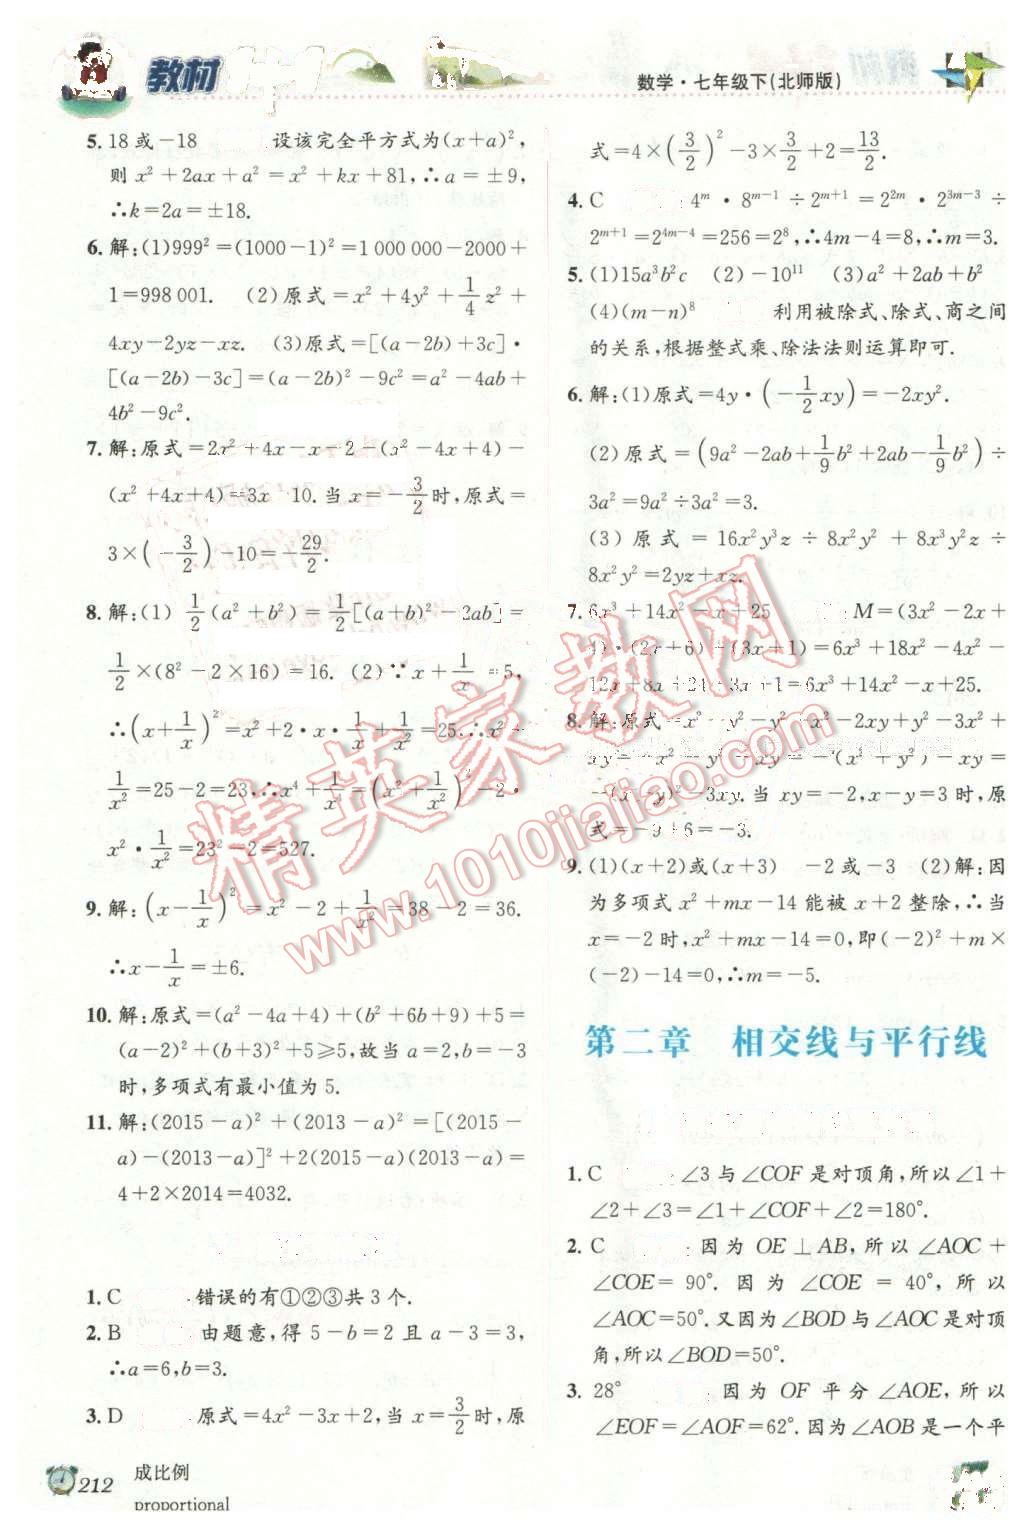 教材
数学·七年级下(北师版)
5. 18或-18 设该完全平方式为(x+a)²,
则 x²+2ax+a²=x²+kx+81,∴a=±9,
∴k=2a=±18.
6. 解:(1)999²=(1000-1)²=1 000 000-2000+
1=998 001. (2)原式=x²+4y²+1/4z²+
4xy-2yz-xz. (3)原式=[(a-2b)+3c]·
[(a-2b)-3c]=(a-2b)²-9c²=a²-4ab+
4b²-9c².
7. 解:原式=2x²+4x-x-2-(x²-4x+4)-
(x²+4x+4)=3x 10. 当 x=-3/2时,原式=
3×(-3/2)-10=-29/2.
8. 解:(1) 1/2(a²+b²)=1/2[(a+b)²-2ab]=
1/2×(8²-2×16)=16. (2)∵x+1/x=5,
∴(x+1/x)²=x²+2·x·1/x+1/x²=25.∴x²+
1/x²=25-2=23.∴x⁴+1/x⁴=(x²+1/x²)²-2·
x²·1/x²=23²-2=527.
9. 解:(x-1/x)²=x²-2+1/x²=38-2=36.
∴x-1/x=±6.
10. 解:原式=(a²-4a+4)+(b²+6b+9)+5=
(a-2)²+(b+3)²+5≥5,故当 a=2,b=-3
时,多项式有最小值为 5.
11. 解:(2015-a)²+(2013-a)²=[(2015-
a)-(2013-a)]²+2(2015-a)(2013-a)=
4+2×2014=4032.
1. C 错误的有①②③共 3 个.
2. B 由题意,得 5-b=2 且 a-3=3,
∴a=6,b=3.
3. D 原式=4x²-3x+2,当 x=3/2时,原
式=4×(3/2)²-3×3/2+2=13/2.
4. C 4ᵐ·8ᵐ⁻¹÷2ᵐ⁺¹=2²ᵐ·2³ᵐ⁻³÷
2ᵐ⁺¹=2⁴ᵐ⁻⁴=256=2⁸,∴4m-4=8,∴m=3.
5. (1)15a³b²c (2)-10¹¹ (3)a²+2ab+b²
(4)(m-n)⁸ 利用被除式、除式、商之间
的关系,根据整式乘、除法法则运算即可.
6. 解:(1)原式=4y·(-1/2xy)=-2xy².
(2)原式=(9a²-2ab+1/9b²+2ab-1/9b²)÷
3a²=9a²÷3a²=3.
(3)原式=16x²y³z÷8x²y²+8x³y²z÷
8x²y²=2yz+xz.
7. 6x³+14x²-x+25 M=(3x²-2x+
4)·(2x+6)+(3x+1)=6x³+18x²-4x²-
12x+8x+24+3x+1=6x³+14x²-x+25.
8. 解:原式=x²-y²-y²-x²-2xy+y²-3x²+
xy=-x²-y²-xy=-(x²+y²)-xy=
-(x-y)²-3xy. 当 xy=-2,x-y=3时,原
式=-9+6=-3.
9. (1)(x+2)或(x+3) -2或-3 (2)解:因
为多项式 x²+mx-14 能被 x+2 整除,∴当
x=-2时,x²+mx-14=0,即(-2)²+m×
(-2)-14=0,∴m=-5.
第二章 相交线与平行线
1. C ∠3 与∠COF 是对顶角,所以∠1+
∠2+∠3=∠1+∠COF+∠2=180°.
2. C 因为 OE⊥AB,所以∠AOC+
∠COE=90°. 因为∠COE=40°,所以
∠AOC=50°. 又因为∠BOD 与∠AOC 是对顶
角,所以∠BOD=50°.
3. 28° 因为 OF 平分∠AOE,所以
∠EOF=∠AOF=62°. 因为∠AOB 是一个平
212
成比例
proportional
精英家教网
www.1010jiajiao.com